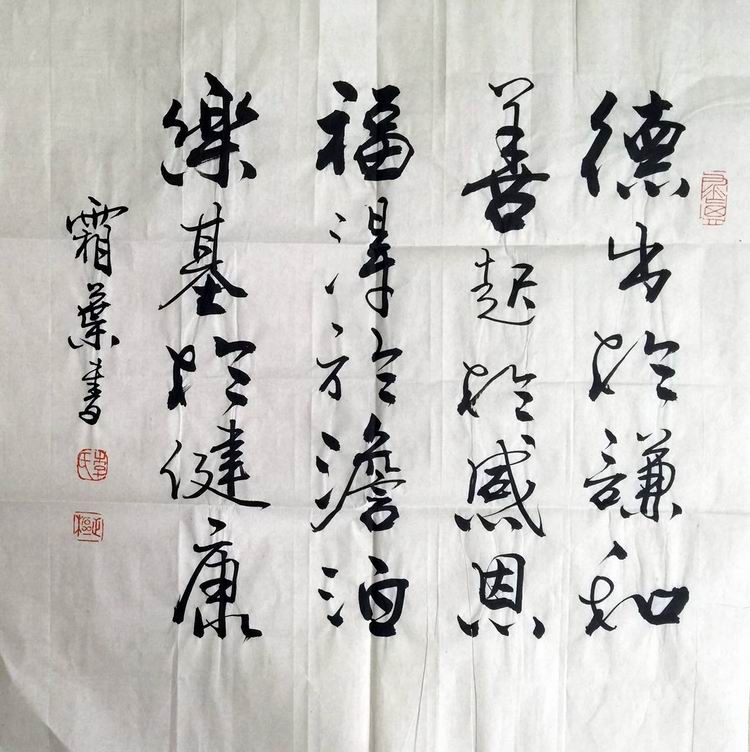 德出於謙和
善起於感恩
福得於澹泊
樂基於健康
霜葉書
李氏